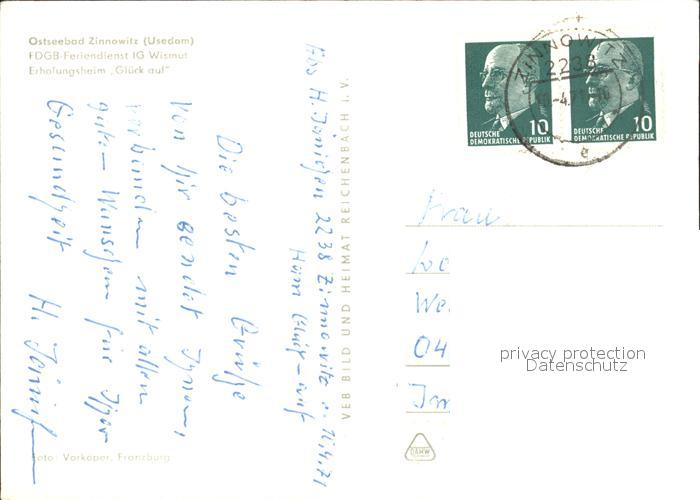 Ostseebad Zinnowitz (Usedom)
FDGB-Feriendienst IG Wismut
Erholungsheim „Glück auf"
Abs. H. 2238 Zinnowitz
Heim Glück-auf
Die besten Grüße
von hier sendet Ihnen,
verbunden mit allen
guten Wünschen für Ihre
Gesundheit H.
Foto: Vorköper, Franzburg
VEB BILD UND HEIMAT REICHENBACH I. V.
ZINNOWITZ
2238
10
DEUTSCHE
DEMOKRATISCHE REPUBLIK
10
DEUTSCHE
DEMOKRATISCHE REPUBLIK
Frau
We
04
Im
privacy protection
Datenschutz